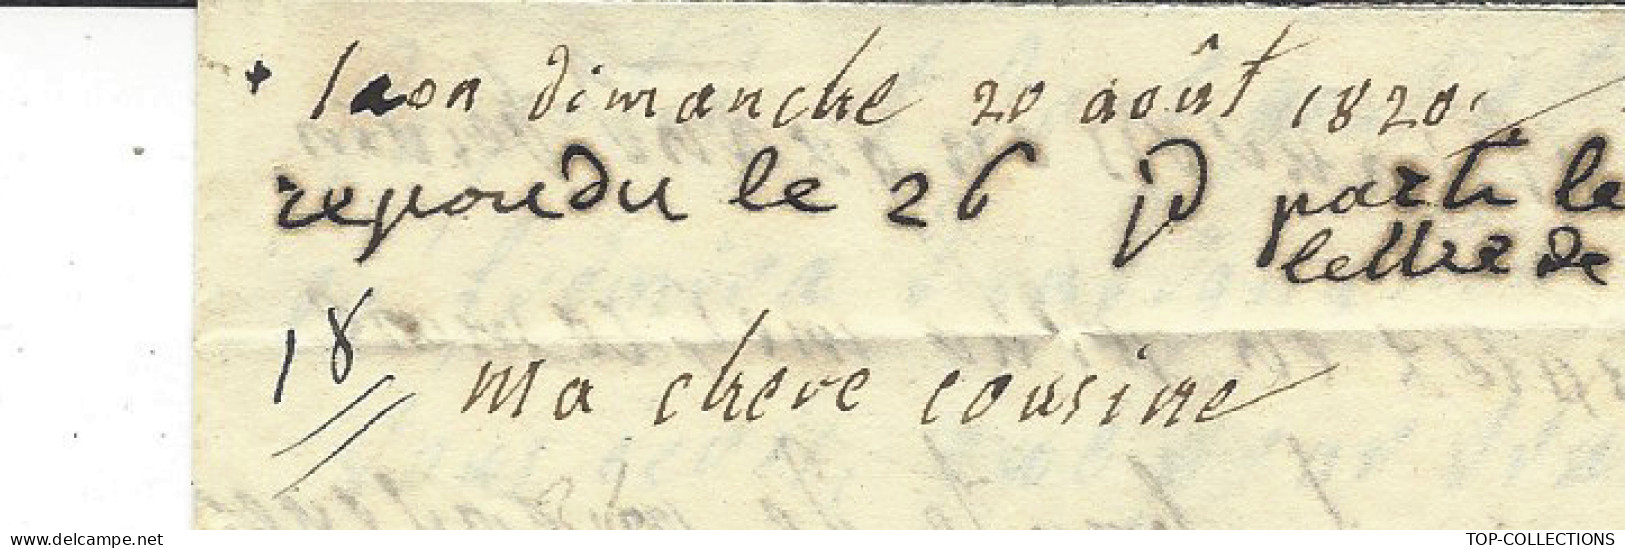 laon dimanche 20 août 1820
repondu le 26 jd parti le
lettre de
18
ma chere cousine
www.delcampe.net
TOP-COLLECTIONS